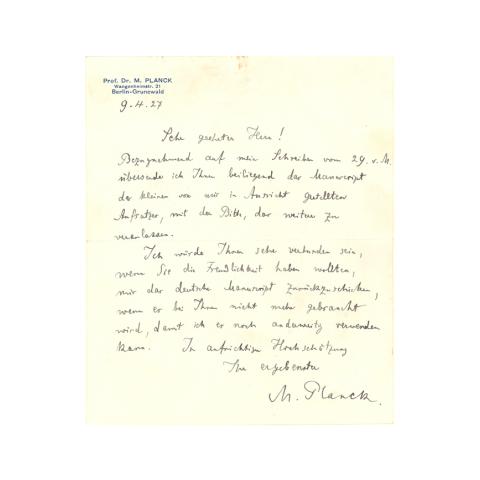 Prof. Dr. M. PLANCK
Wangenheimstr. 21
Berlin-Grunewald
9.4.27
Sehr geehrter Herr!
Bezugnehmend auf mein Schreiben vom 29. v. M.
übersende ich Ihnen beiliegend das Manuscript
des kleinen von mir in Aussicht gestellten
Aufsatzes, mit der Bitte, das weitere zu
veranlassen.
Ich würde Ihnen sehr verbunden sein,
wenn Sie die Freundlichkeit haben wollten,
mir das deutsche Manuscript zurückzuschicken,
wenn es bei Ihnen nicht mehr gebraucht
wird, damit ich es noch anderweitig verwenden
kann. In aufrichtiger Hochschätzung
Ihr ergebenster
M. Planck.